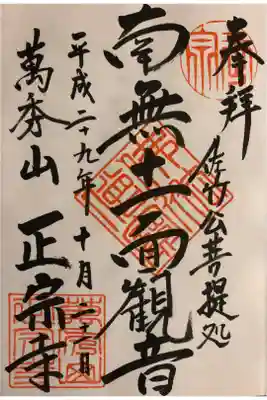 奉拝
佐竹公菩提処
南無十一面観音
平成二十九年十月二十二日
萬秀山 正宗寺